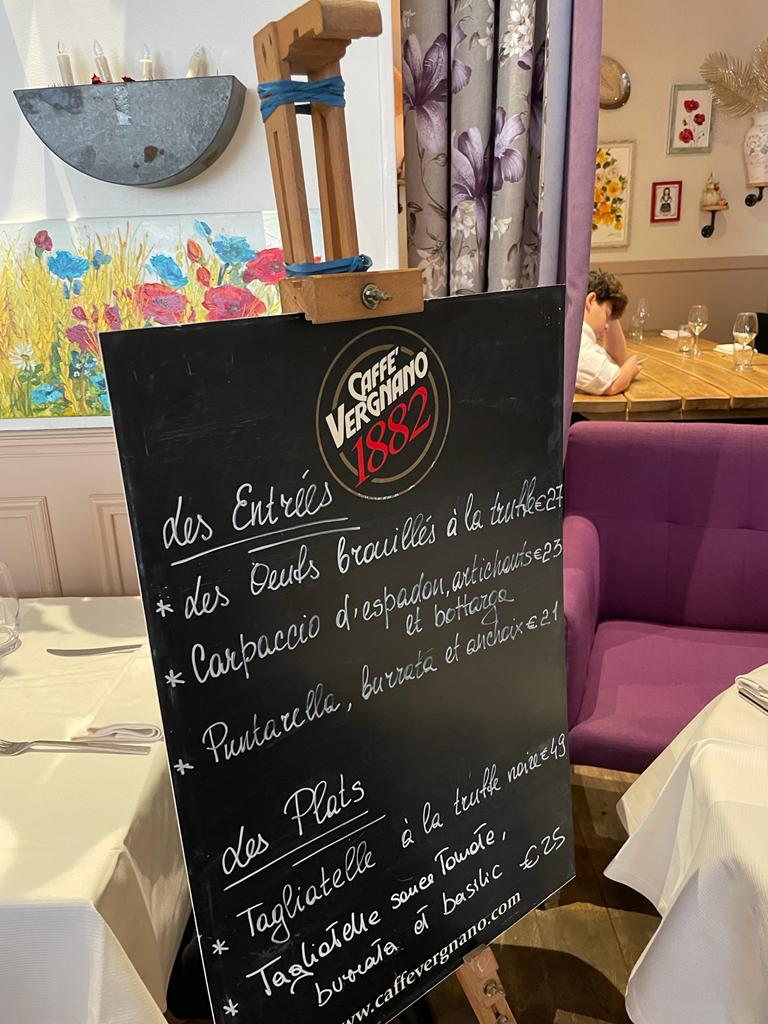 CAFFÈ
VERGNANO
1882
Les Entrées
* Les Oeufs brouillés à la truffe €27
* Carpaccio d'espadon, artichauts €23
et bottarga
* Puntarella, burrata et anchoix €21
Les Plats
* Tagliatelle à la truffe noire €49
* Tagliatelle sauce Tomate,
burrata et basilic €25
www.caffevergnano.com